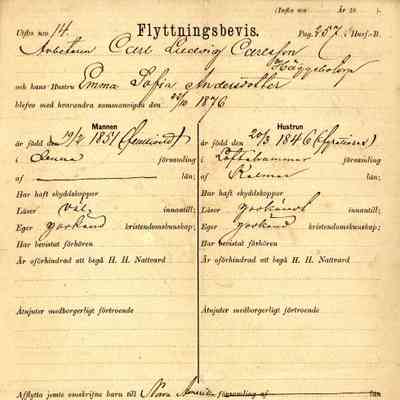 (Infos nro År 18 .)
Utfrs nro 14. Flyttningsbevis. Pag. 257, Husf.-B.
Arbetaren Carl Ludvig Carlsson
Häggebotorp
och hans Hustru Emma Sofia Andersdotter
blefvo med hvarandra sammanvigda den 22/10 1876
Mannen Hustrun
är född den 19/2 1851 (femtioett) är född den 20/3 1846 (fyratiosex)
i Denna församling i Loftahammar församling
af län; af Kalmar län;
Har haft skyddskoppor Har haft skyddskoppor
Läser väl innantill; Läser godkändt innantill;
Eger godkänd kristendomskunskap; Eger godkänd kristendomskunskap;
Har bevistat förhören Har bevistat förhören
Är oförhindrad att begå H. H. Nattvard Är oförhindrad att begå H. H. Nattvard
Åtnjuter medborgerligt förtroende Åtnjuter medborgerligt förtroende
Afflytta jemte omskrifne barn till Norra Amerika församling af län